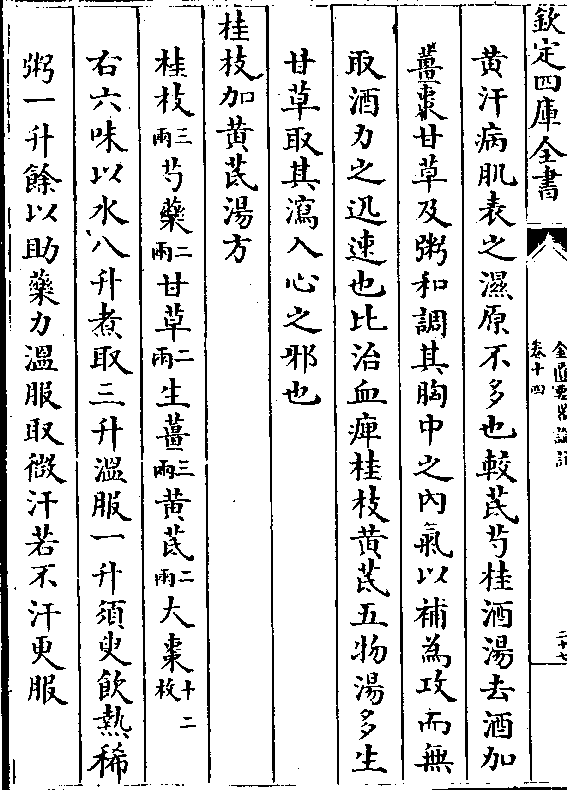 欽定四庫全書
金匱要略論註
卷十四
二十七
黄汗病肌表之濕原不多也較芪芍桂酒湯去酒加
薑棗甘草及粥和調其胸中之内氣以補為攻而無
取酒力之迅速也比治血痺桂枝黄芪五物湯多生
甘草取其瀉入心之邪也
桂枝加黄芪湯方
桂枝三兩芍藥二兩甘草二兩生薑三兩黄芪二兩大棗十二枚
右六味以水八升煮取三升溫服一升須臾飲熱稀
粥一升餘以助藥力溫服取微汗若不汗更服